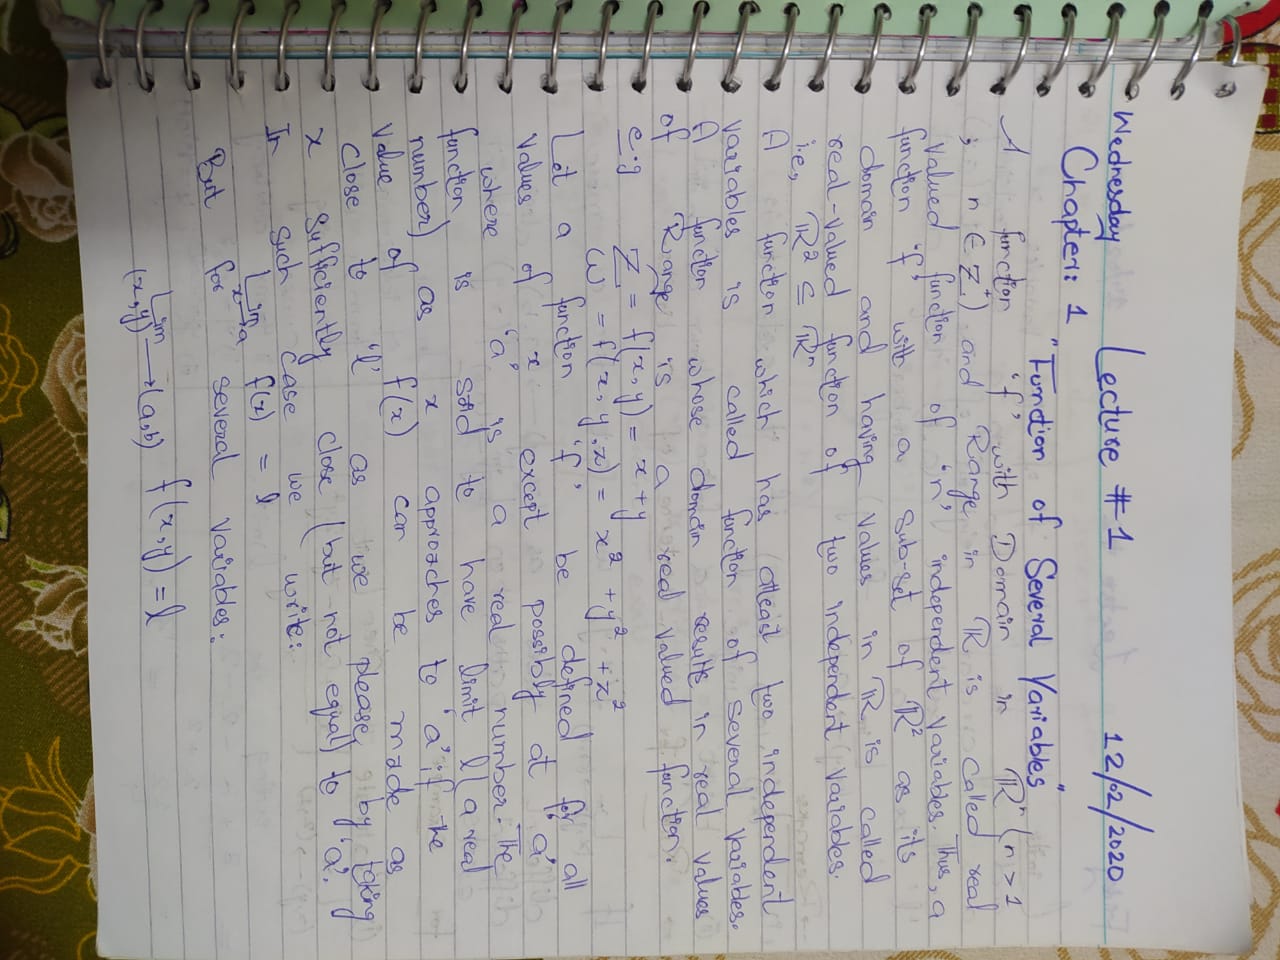 Wednesday Lecture #1 12/02/2020
Chapter: 1
"Function of Several Variables"
A function 'f' with Domain in ℝⁿ (n > 1
; n ∈ Z⁺) and Range in ℝ is called real
valued function of 'n' independent variables. Thus, a
function 'f' with a sub-set of ℝ² as its
domain and having values in ℝ is called
real-valued function of two independent variables.
i.e, ℝ² ⊆ ℝⁿ
A function which has atleast two independent
variables is called function of several variables.
A function whose domain results in real values
of Range is a real valued function.
e.g Z = f(x,y) = x + y
ω = f(x,y,z) = x² + y² + z²
Let a function 'f' be defined for all
values of x except possibly at 'a'
where 'a' is a real number. The
function is said to have limit l (a real
number) as x approaches to 'a' if the
value of f(x) can be made as
close to 'l' as we please by taking
x sufficiently close (but not equal) to 'a'.
In such case we write:
Lim x→a f(x) = l
But for several variables:
Lim (x,y)→(a,b) f(x,y) = l